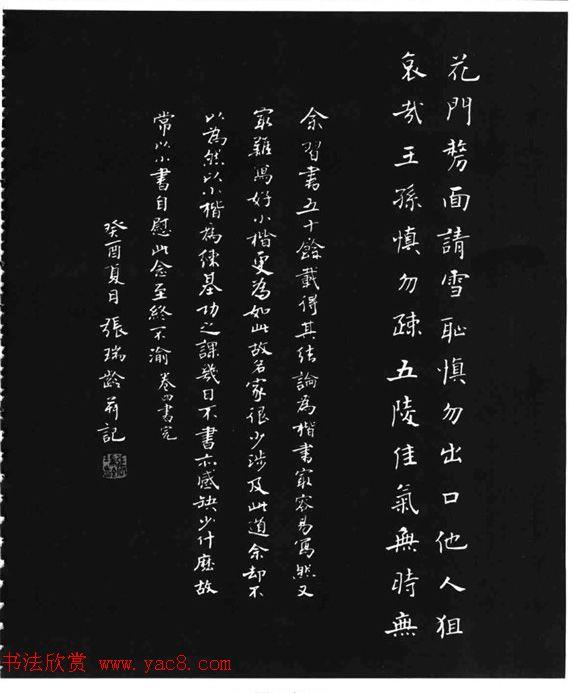 花門剺面請雪恥慎勿出口他人狙
哀哉王孫慎勿疎五陵佳氣無時無
余習書五十餘載得其结論為楷書最容易寫然又
最難寫好小楷更為如此故名家很少涉及此道余却不
以為然以小楷為练基功之課幾日不書亦感缺少什麽故
常以小書自慰此念至終不渝 卷四書完
癸酉夏月 張瑞齡并記
书法欣赏 www.yac8.com